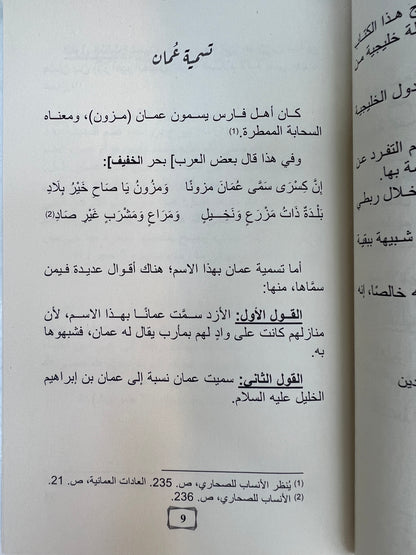 تسمية عُمان
كان أهل فارس يسمون عمان (مزون)، ومعناه
السحابة الممطرة.(1)
وفي هذا قال بعض العرب] بحر الخفيف]:
إنّ كِسْرَى سَمَّى عُمَانَ مزونًا وَمزُونُ يَا صَاحِ خَيْرُ بِلَادِ
بَلْدَةٌ ذَاتُ مَزْرعٍ وَنَخِيـلٍ وَمَرَاعٍ وَمَشْرَبٍ غَيْرِ صَادِ(2)
أما تسمية عمان بهذا الاسم؛ هناك أقوال عديدة فيمن
سمَّاها، منها:
القول الأول: الأزد سمَّت عمانًا بهذا الاسم، لأن
منازلهم كانت على وادٍ لهم بمأرب يقال له عمان، فشبهوها
به.
القول الثاني: سميت عمان نسبة إلى عمان بن إبراهيم
الخليل عليه السلام.
(1) يُنظر الأنساب للصحاري، ص. 235. العادات العمانية، ص. 21.
(2) الأنساب للصحاري، ص. 236.
9
ج هذا الكتاب
لة خليجية من
دول الخليجية
م التفرد عن
ة بها.
خلال ربطي
شبيهة ببقية
ه خالصًا، إنه
دين